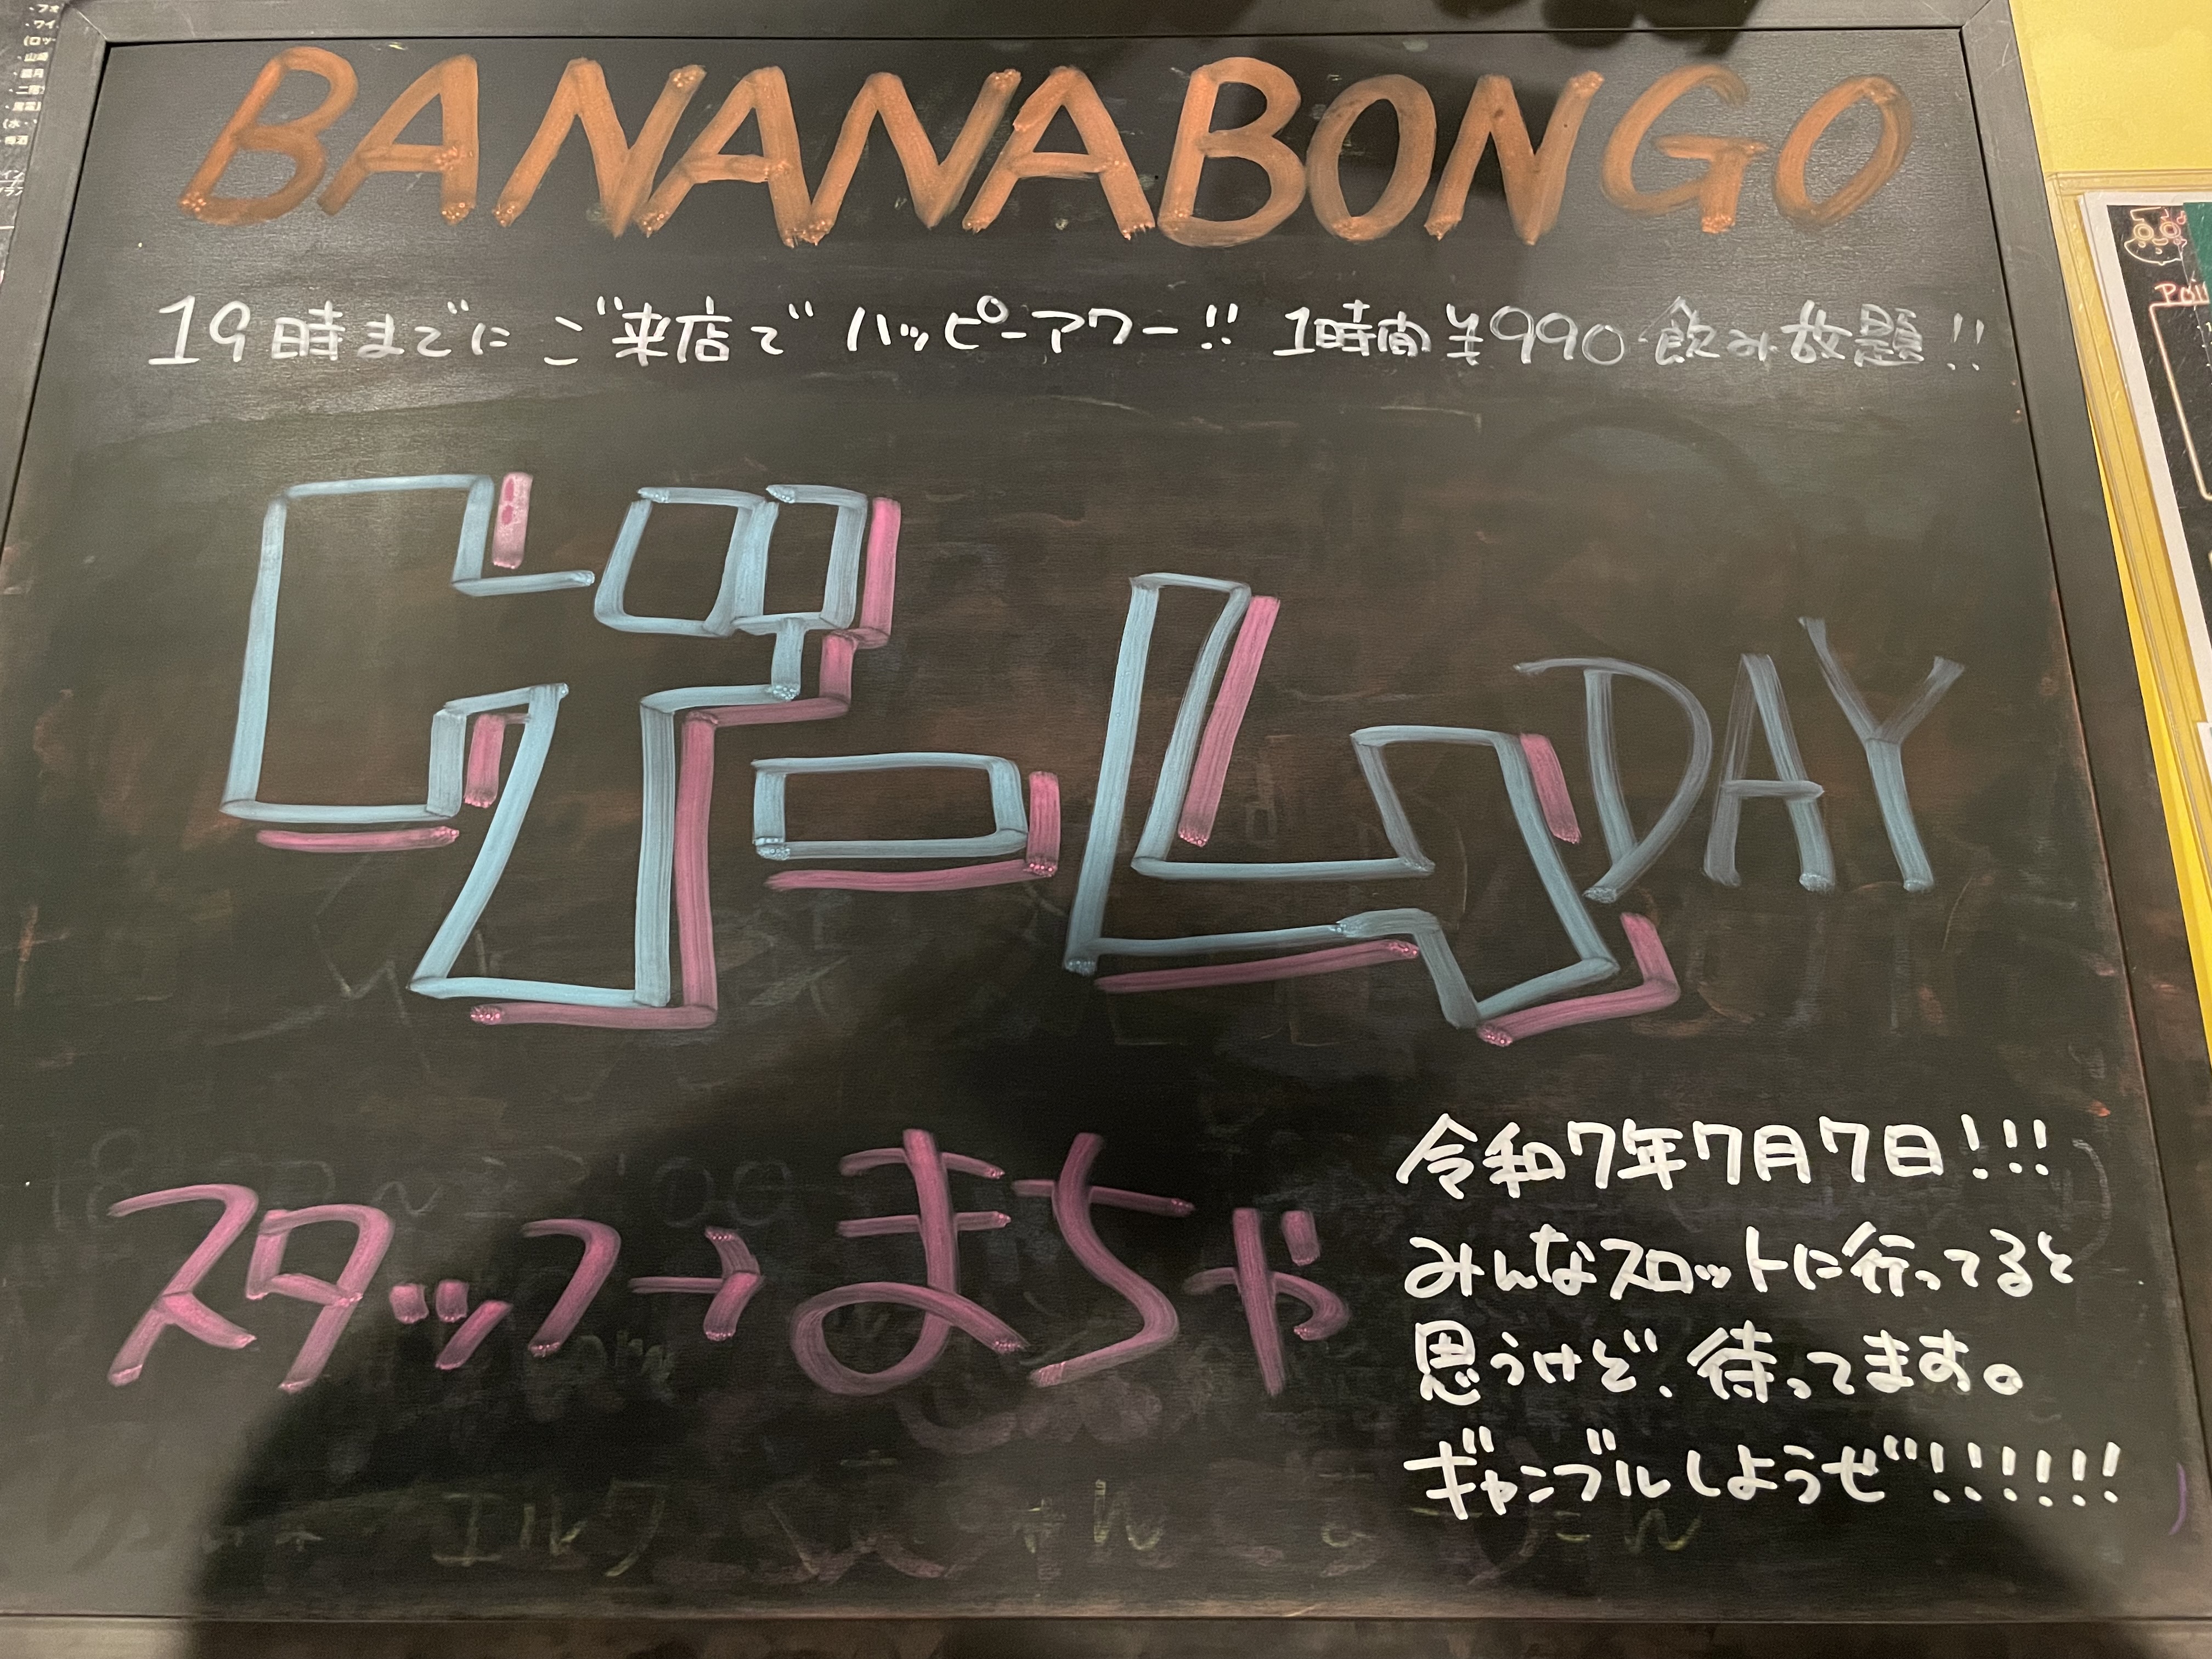 BANANABONGO
19時までにご来店でハッピーアワー!! 1時間¥990飲み放題!!
ゲームDAY
スタッフ→まちゃ
令和7年7月7日!!!
みんなスロットに行ってると
思うけど、待ってます。
ギャンブルしようぜ!!!!!!